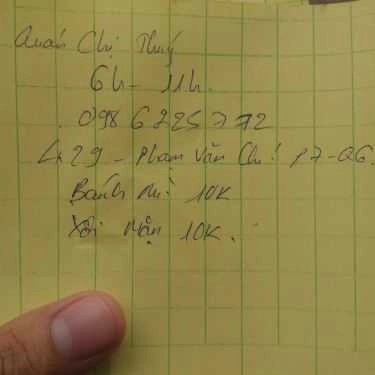 Quán Chị Thuý
6h - 11h.
0986225772
429 - Phạm Văn Chí P7-Q6
Bánh mì 10K
Xôi Mặn 10K.